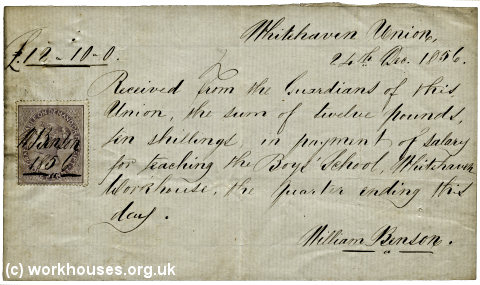 Whitehaven Union,
24th Dec. 1856.
£12-10-0.
Received from the Guardians of this
Union, the sum of twelve pounds,
ten shillings in payment of salary
for teaching the Boys' School, Whitehaven
Workhouse, the quarter ending this
day.
W Benson
William Benson.
(c) workhouses.org.uk